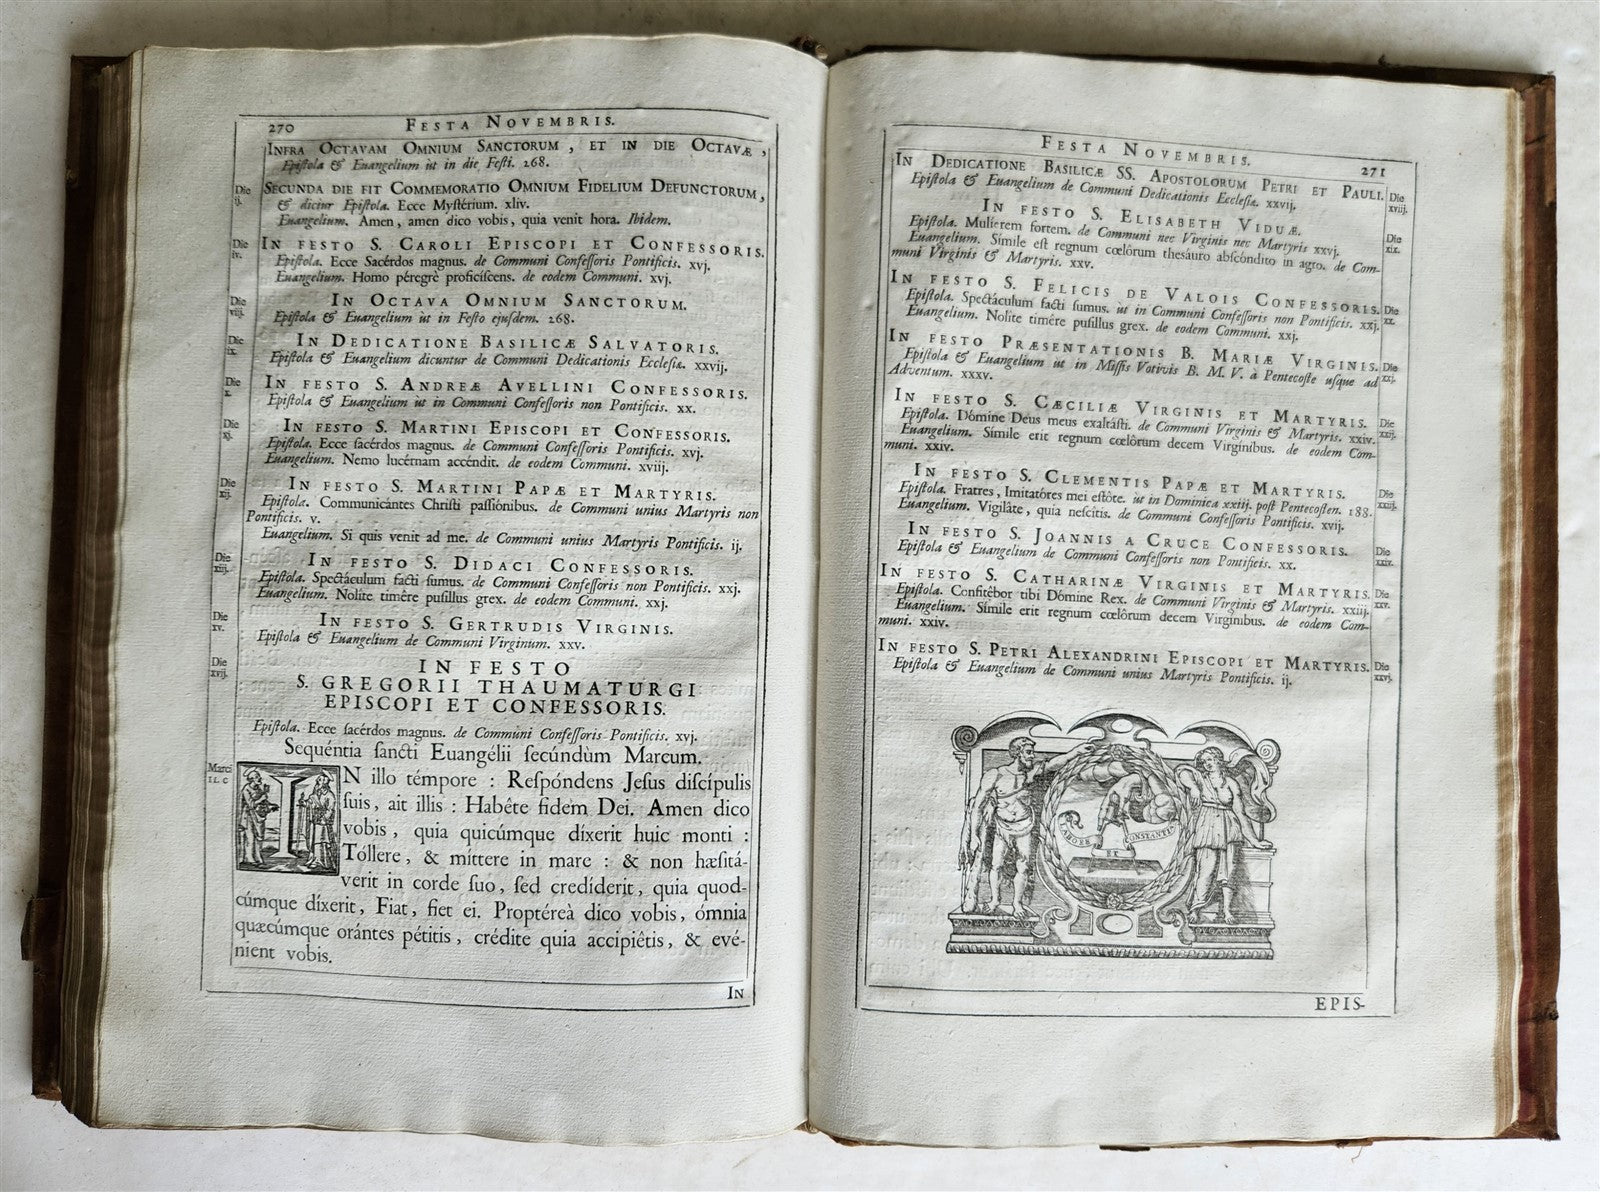 270 FESTA NOVEMBRIS.
INFRA OCTAVAM OMNIUM SANCTORUM, ET IN DIE OCTAVÆ,
Epiſtola & Euangelium ùt in die Feſti. 268.
Die ij. SECUNDA DIE FIT COMMEMORATIO OMNIUM FIDELIUM DEFUNCTORUM,
& dicitur Epiſtola. Ecce Myſtérium. xliv.
Euangelium. Amen, amen dico vobis, quia venit hora. Ibidem.
Die iv. IN FESTO S. CAROLI EPISCOPI ET CONFESSORIS.
Epiſtola. Ecce Sacérdos magnus. de Communi Confeſſoris Pontificis. xvj.
Euangelium. Homo péregrè proficíſcens. de eodem Communi. xvj.
Die viij. IN OCTAVA OMNIUM SANCTORUM.
Epiſtola & Euangelium ùt in Feſto ejuſdem. 268.
Die ix. IN DEDICATIONE BASILICÆ SALVATORIS.
Epiſtola & Euangelium dicuntur de Communi Dedicationis Eccleſiæ. xxvij.
Die x. IN FESTO S. ANDREÆ AVELLINI CONFESSORIS.
Epiſtola & Euangelium ùt in Communi Confeſſoris non Pontificis. xx.
Die xj. IN FESTO S. MARTINI EPISCOPI ET CONFESSORIS.
Epiſtola. Ecce ſacérdos magnus. de Communi Confeſſoris Pontificis. xvj.
Euangelium. Nemo lucérnam accéndit. de eodem Communi. xviij.
Die xij. IN FESTO S. MARTINI PAPÆ ET MARTYRIS.
Epiſtola. Communicántes Chriſti paſſiónibus. de Communi unius Martyris non
Pontificis. v.
Euangelium. Si quis venit ad me. de Communi unius Martyris Pontificis. ij.
Die xiij. IN FESTO S. DIDACI CONFESSORIS.
Epiſtola. Spectáculum facti ſumus. de Communi Confeſſoris non Pontificis. xxj.
Euangelium. Nolîte timêre puſíllus grex. de eodem Communi. xxj.
Die xv. IN FESTO S. GERTRUDIS VIRGINIS.
Epiſtola & Euangelium de Communi Virginum. xxv.
Die xvij. IN FESTO
S. GREGORII THAUMATURGI
EPISCOPI ET CONFESSORIS.
Epiſtola. Ecce ſacérdos magnus. de Communi Confeſſoris Pontificis. xvj.
Sequéntia ſancti Euangélii ſecúndùm Marcum.
Marci 11. c N illo témpore : Reſpóndens Jeſus diſcípulis
ſuis, ait illis : Habête fidem Dei. Amen dico
vobis, quia quicúmque díxerit huic monti :
Tóllere, & míttere in mare : & non hæſitá-
verit in corde ſuo, ſed credíderit, quia quod-
cúmque díxerit, Fiat, fiet ei. Proptéreà dico vobis, ómnia
quæcúmque orántes pétitis, crédite quia accipiêtis, & evé-
nient vobis.
IN
FESTA NOVEMBRIS. 271
IN DEDICATIONE BASILICÆ SS. APOSTOLORUM PETRI ET PAULI. Die xviij.
Epiſtola & Euangelium de Communi Dedicationis Eccleſiæ. xxvij.
IN FESTO S. ELISABETH VIDUÆ. Die xix.
Epiſtola. Mulíerem fortem. de Communi nec Virginis nec Martyris xxvj.
Euangelium. Símile eſt regnum cœlôrum theſáuro abſcóndito in agro. de Com-
muni Virginis & Martyris. xxv.
IN FESTO S. FELICIS DE VALOIS CONFESSORIS. Die xx.
Epiſtola. Spectáculum facti ſumus. ùt in Communi Confeſſoris non Pontificis. xxj.
Euangelium. Nolîte timêre puſíllus grex. de eodem Communi. xxj.
IN FESTO PRÆSENTATIONIS B. MARIÆ VIRGINIS. Die xxj.
Epiſtola & Euangelium ùt in Miſſis Votivis B. M. V. à Pentecoſte uſque ad
Adventum. xxxv.
IN FESTO S. CÆCILIÆ VIRGINIS ET MARTYRIS. Die xxij.
Epiſtola. Dómine Deus meus exaltáſti. de Communi Virginis & Martyris. xxiv.
Euangelium. Símile erit regnum cœlôrum decem Virgínibus. de eodem Com-
muni. xxiv.
IN FESTO S. CLEMENTIS PAPÆ ET MARTYRIS. Die xxiij.
Epiſtola. Fratres, Imitatôres mei eſtôte. ùt in Dominica xxiij. poſt Pentecoſten. 188.
Euangelium. Vigilâte, quia neſcîtis. de Communi Confeſſoris Pontificis. xvij.
IN FESTO S. JOANNIS A CRUCE CONFESSORIS. Die xxiv.
Epiſtola & Euangelium de Communi Confeſſoris non Pontificis. xx.
IN FESTO S. CATHARINÆ VIRGINIS ET MARTYRIS. Die xxv.
Epiſtola. Confitêbor tibi Dómine Rex. de Communi Virginis & Martyris. xxiij.
Euangelium. Símile erit regnum cœlôrum decem Virgínibus. de eodem Com-
muni. xxiv.
IN FESTO S. PETRI ALEXANDRINI EPISCOPI ET MARTYRIS. Die xxvj.
Epiſtola & Euangelium de Communi unius Martyris Pontificis. ij.
LABORE ET CONSTANTIA
EPIS-